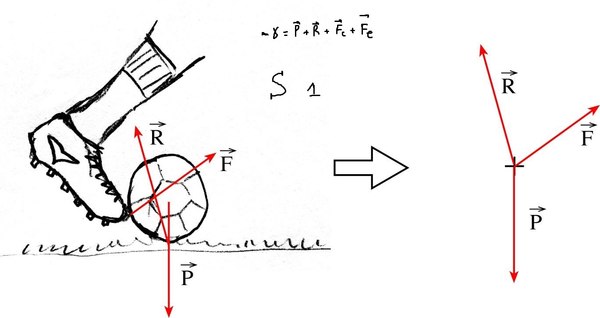 mγ = P⃗ + R⃗ + F⃗c + F⃗e
S 1
R⃗
F⃗
P⃗
R⃗
F⃗
P⃗